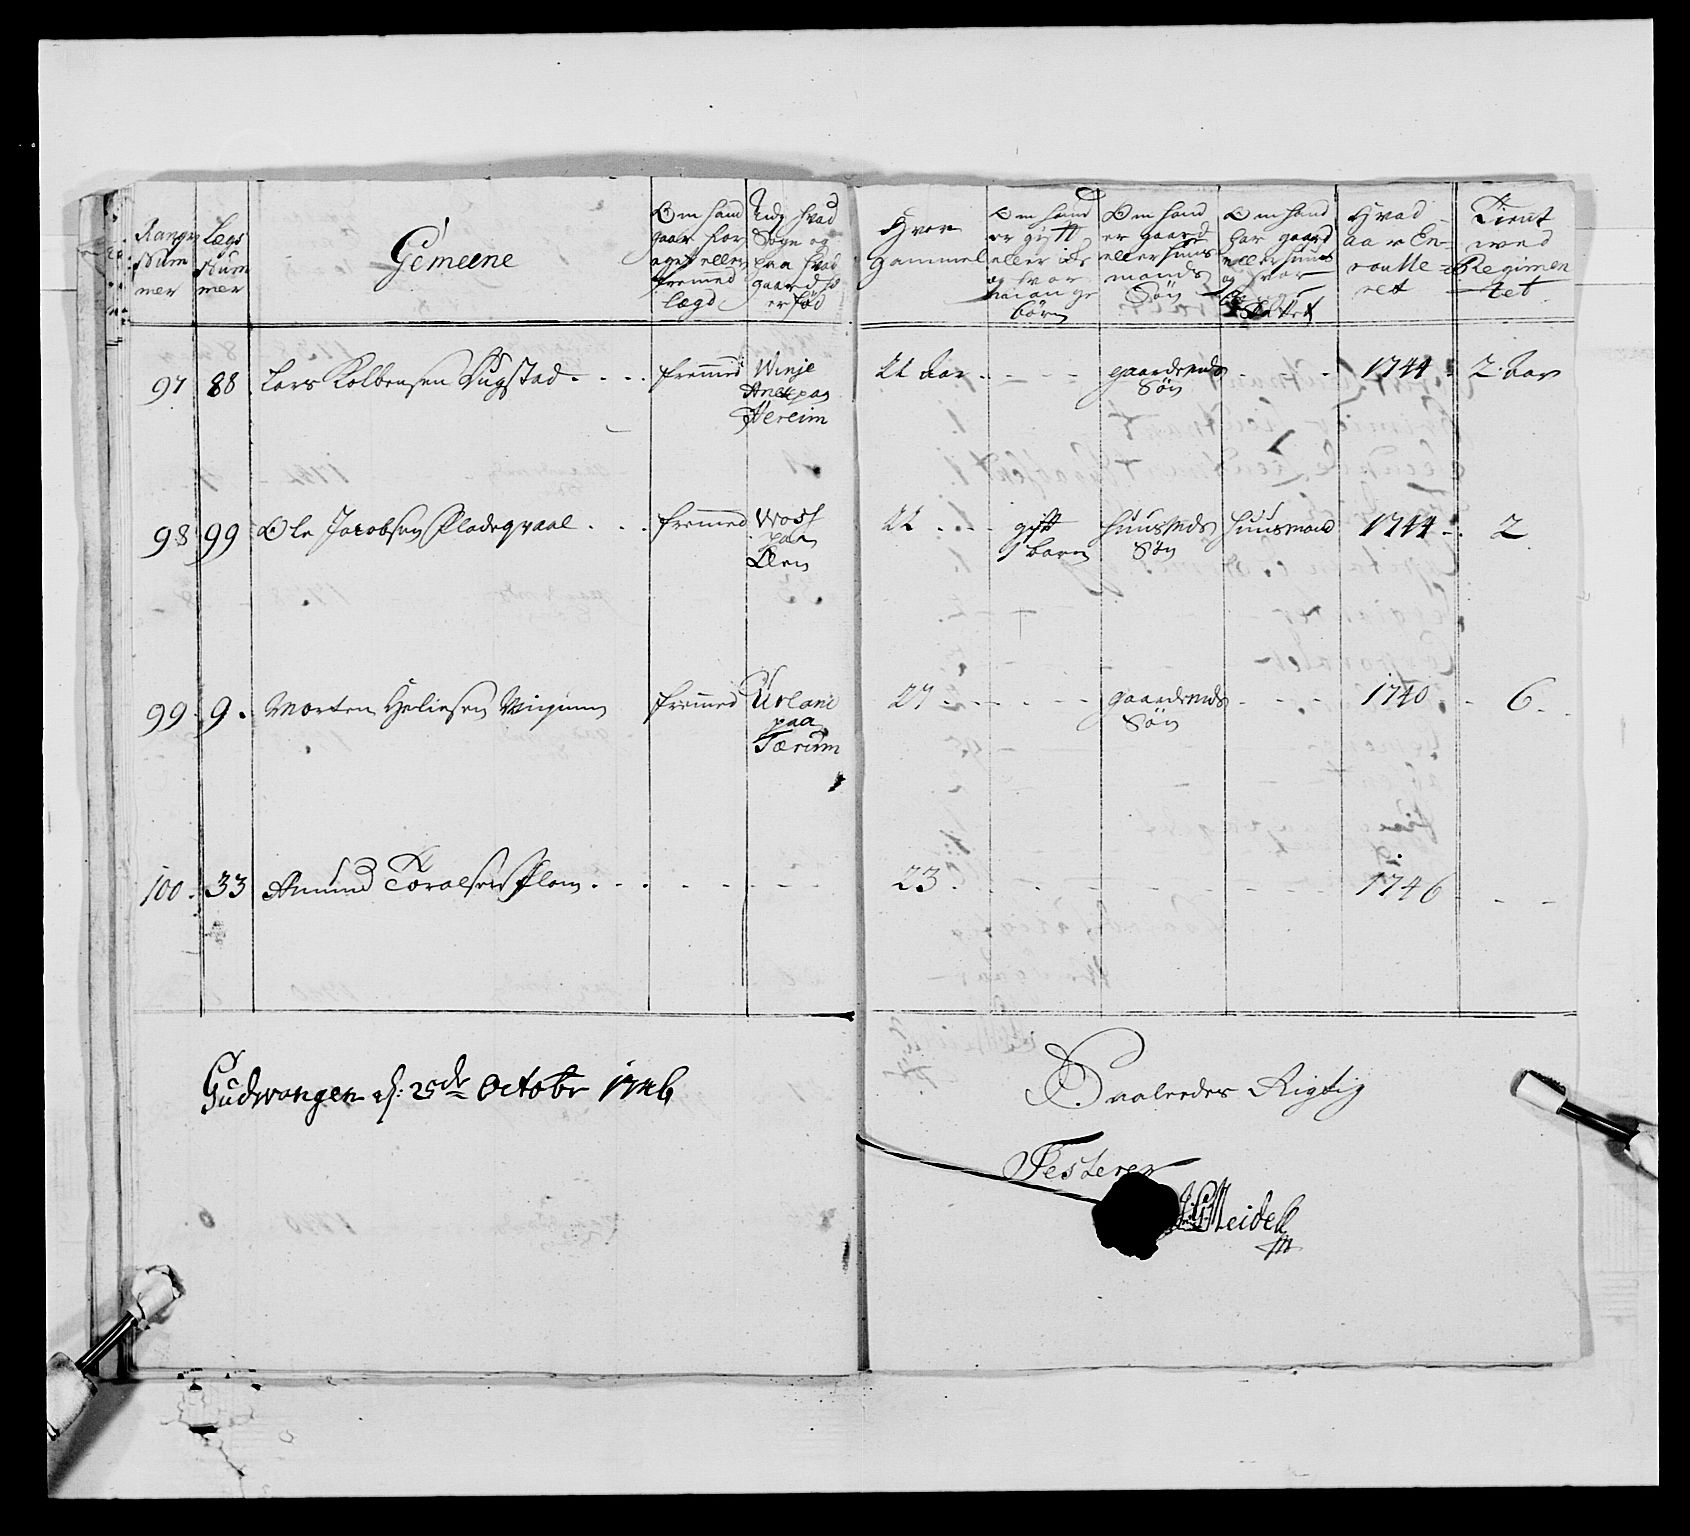 Rangs Num mer
Lægs Num mer
Gemeene
Om hand gaar for eget eller fremmed lægd
Udj hvad Sogn og paa hvad gaard er fød
Hvor Gammel
Om hand er gift eller ey og hvor mange börn
Om hand er gaard eller huus mands Søn
Om hand har gaard eller huus og hvor
Hvad aar En roulle ret
Tient wed Regimen tet
97 88 Lars Kolbensen Rugstad fremed Winje Anex paa Hereim 22 Aar gaardmands Søn 1744 2 Aar
98 99 Ole Jacobsen Fladeqvaal fremmed Woss paa Øen 22 gift 1 barn huusmds Søn huusmand 1744 2
99 9 Morten Heliesen fremed Urland paa Tærum 27 gaardmds Søn 1740 6
100 33 Amund Toralsen Flom 23 1746
Gudwangen d: 25de Octobr 1746
Saaledes Rigtig
Testerer
Meidell